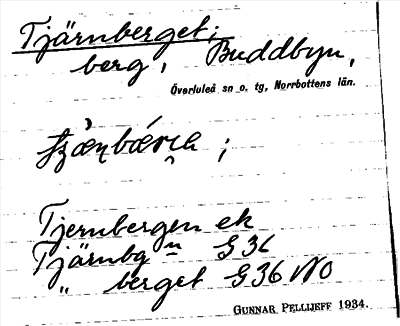 Tjärnberget;
berg, Buddbyn,
Överluleå sn o. tg, Norrbottens län.
Tjernbergen ek
Tjärnbg n G 36
" berget G 36 NO
GUNNAR PELLIJEFF 1934.